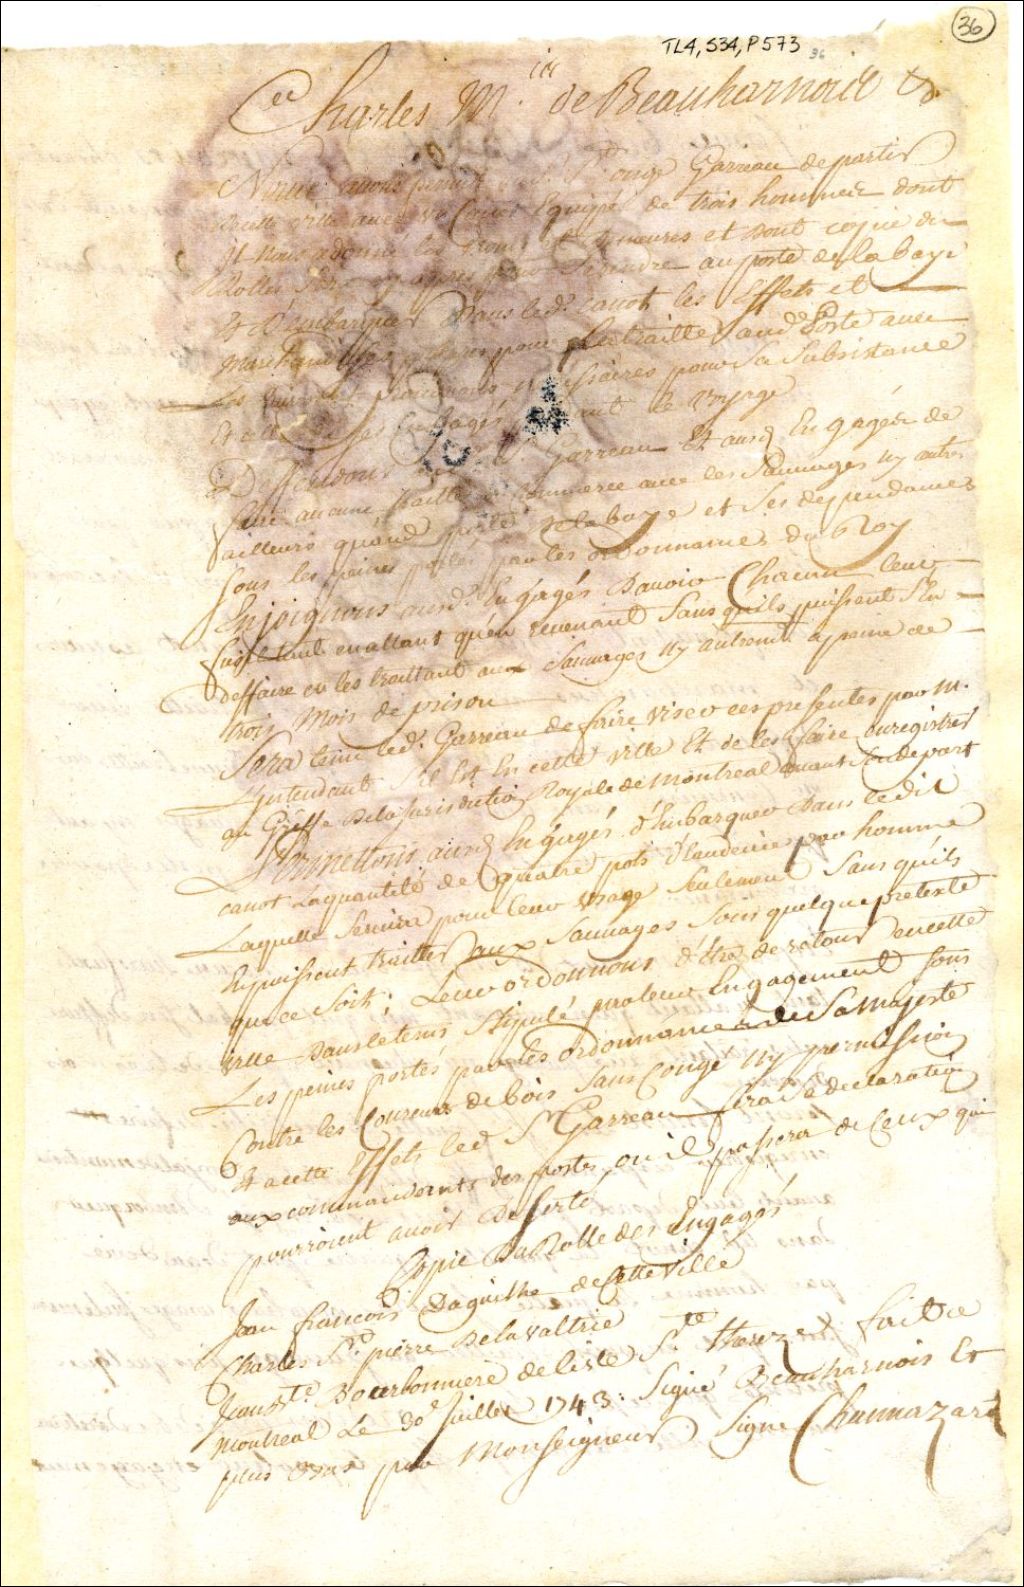 36
TL4, S34, P573
36
Charles M.is de Beauharnois &a.
Nous avons permis au S.r Garreau de partir
de cette ville avec un Canot Equipé de trois hommes dont
Il nous a donné les noms et demeures et dont copie du
Rolle Sera cy apres pour Se rendre au poste de la baye
Et d'Embarquer dans led. canot les Effets et
marchandises pour la traitte aud. Poste avec
Les vivres necessaires pour Sa Subsistance
Et celle de ses Engagés durant le voyage
Deffendons aud. S.r Garreau Et ausd. Engagés de
faire aucune traitte ny Commerce avec les Sauvages ny autres
ailleurs quaud. poste de la baye et Ses dependances
Sous les peines portés par les ordonnances du Roy
Enjoignons ausd. Engagés Davoir Chacun leur
fusil tant en allant qu'en revenant Sans quils puissent S'en
deffaire ou les traittant aux Sauvages ny autrement a peine de
trois Mois de prison
Sera tenu led. Garreau de faire viser ces presentes par M.
L'intendant S'il Est En cette ville Et de les faire enregistrer
au Greffe de la Jurisdiction Royale de Montreal avant Son depart
Permettons ausd. Engagés d'Embarquer dans ledit
canot La quantité de quatre pots d'Eaudevie par homme
Laquelle Servira pour leur usage Seulement Sans qu'ils
En puissent traitter aux Sauvages Sous quelque pretexte
que ce Soit; Leur ordonnons d'être de retour en cette
ville dans le tems Stipulé par leur Engagement Sous
Les peines portés par les ordonnances de Sa Majesté
Contre les Coureurs de bois Sans Congé Ny permission
Et a cette Effets led. S.r Garreau fera Sa declaration
aux commandants des postes ou il passera de Ceux qui
pourroient avoir Deserté
Copie Du Rolle des Engagés
Jean françois Daguilhe de Cette ville
Charles S.t pierre De la valtrie
Jean B.te Bourbonniere de l'isle S.te thereze fait a
Montreal Le 30.e Juillet 1743. Signé Beauharnois Et
plus bas par Monseigneur Signé Chamazard